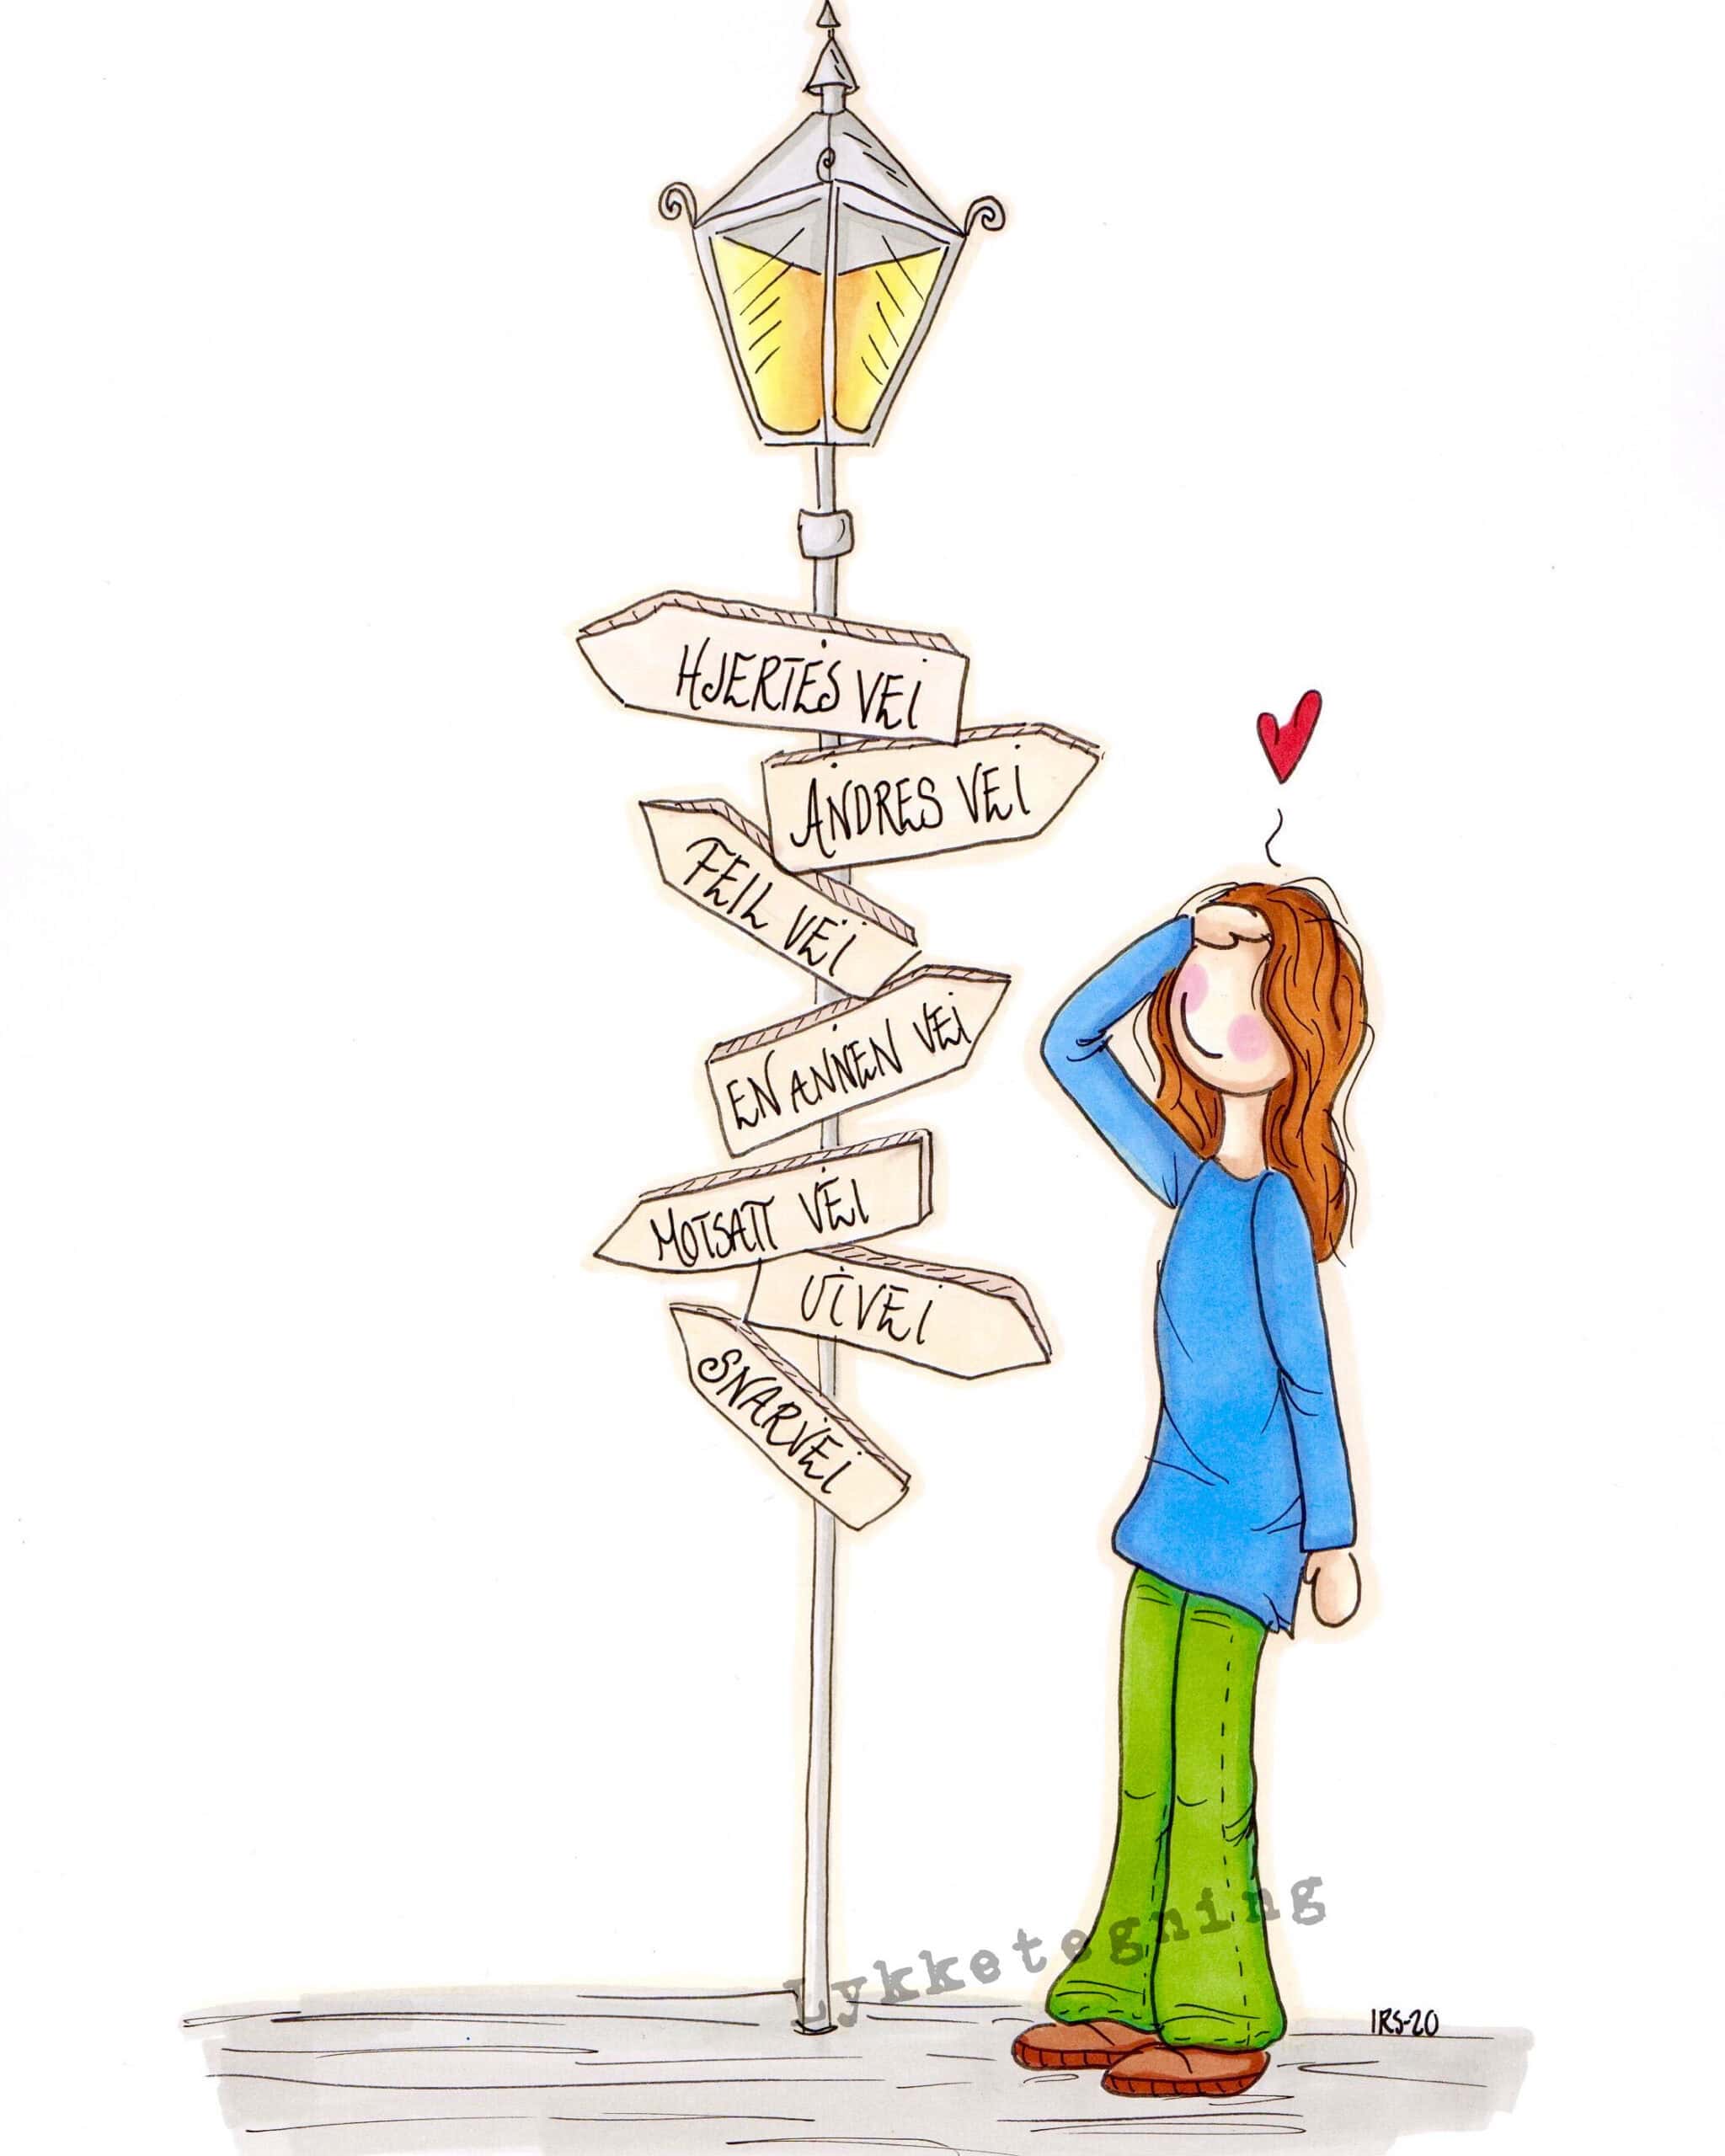 HJERTES VEI
ANDRES VEI
FEIL VEI
EN ANNEN VEI
MOTSATT VEI
UTVEI
SNARVEI
Lykketegning
IRS-20